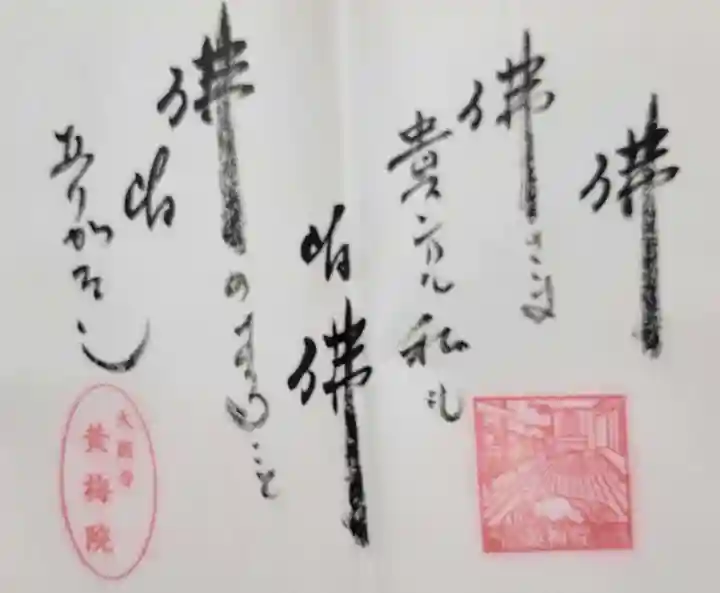 佛
佛さま
貴方も私も
皆佛
佛のすること
皆
ありがたし
大徳寺
黄梅院